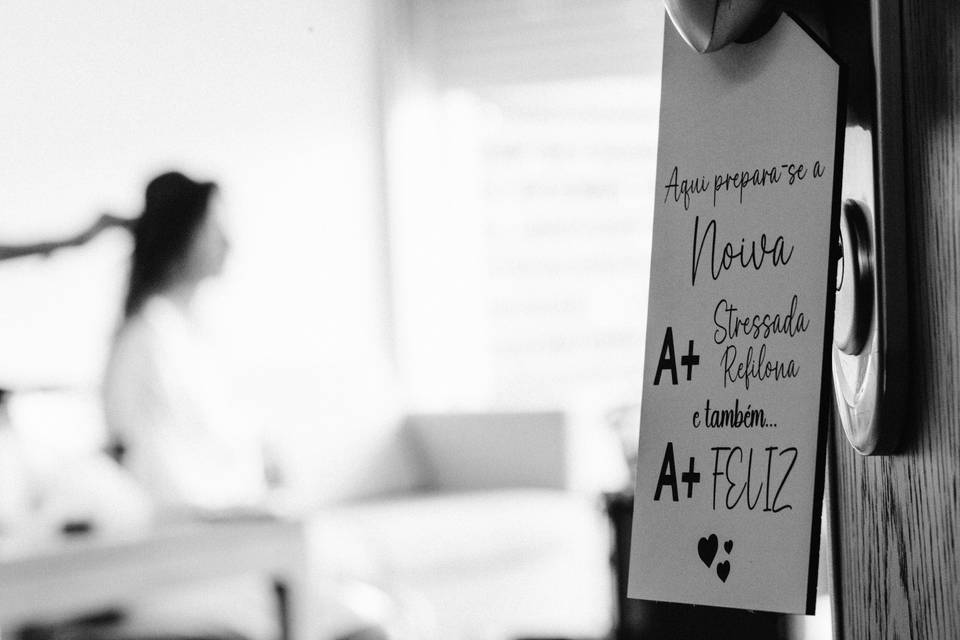 Aqui prepara-se a
Noiva
A+ Stressada
Refilona
e também...
A+ FELIZ